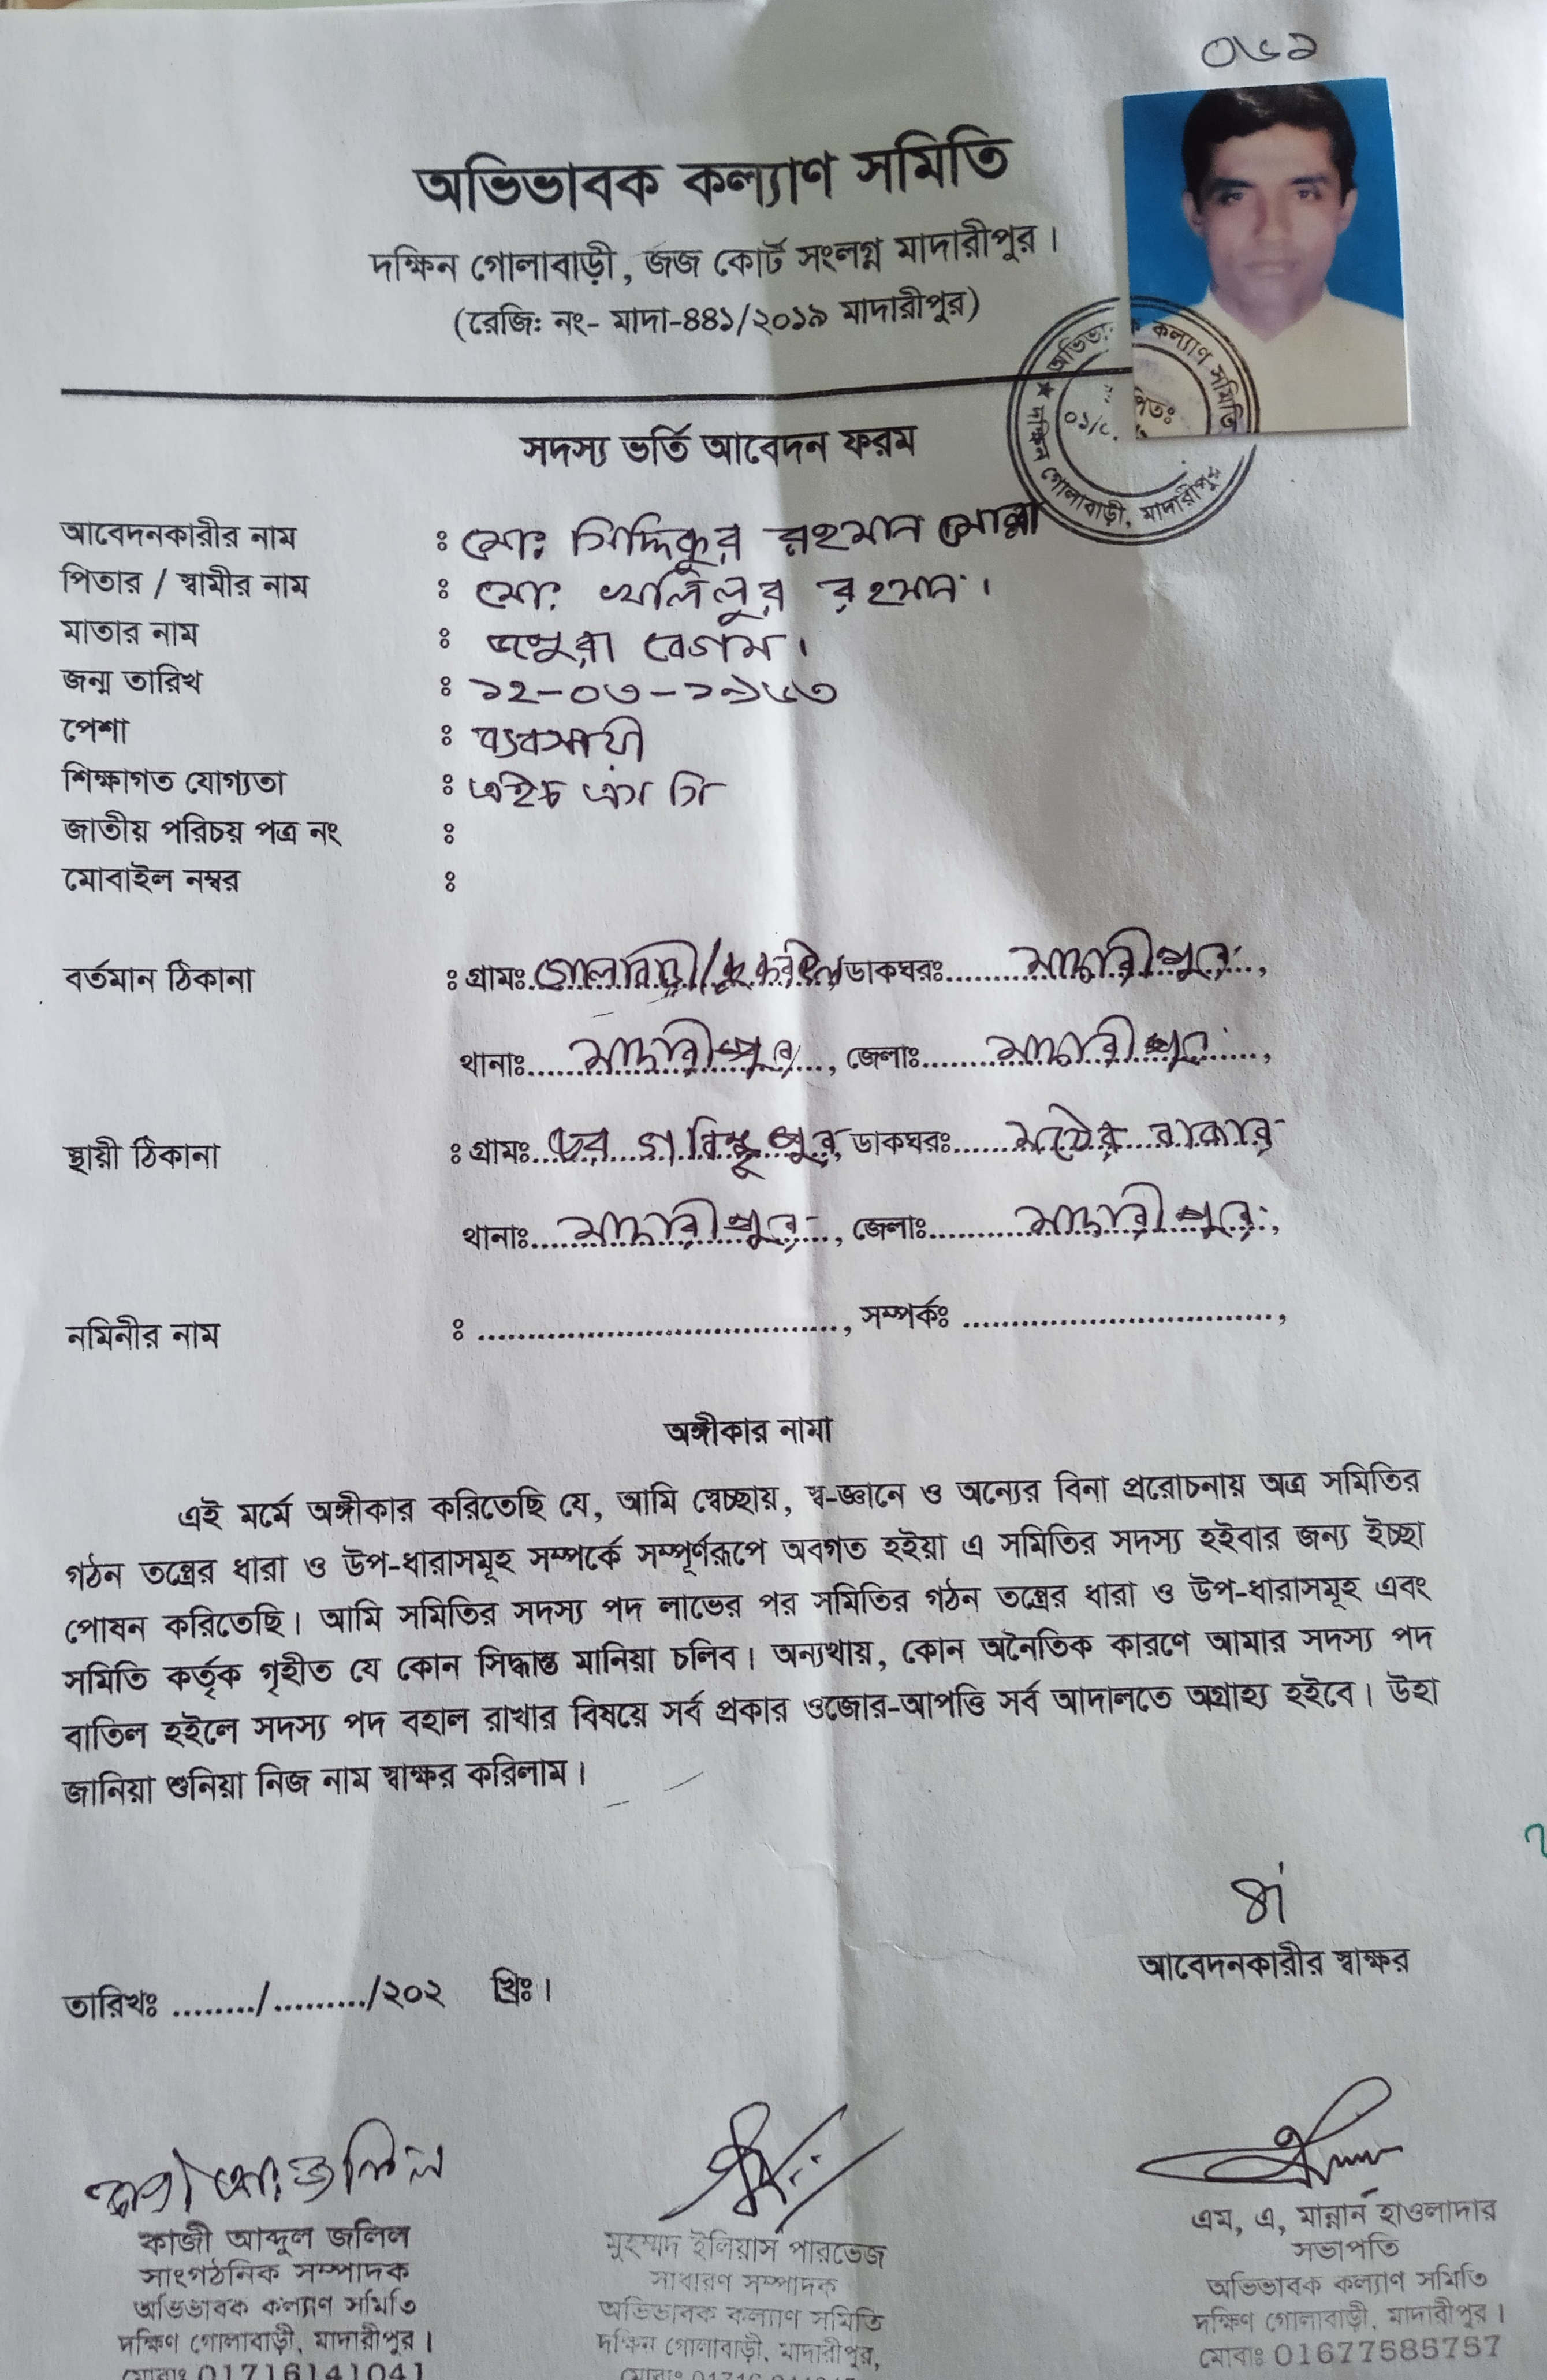 ০৬১
অভিভাবক কল্যাণ সমিতি
দক্ষিন গোলাবাড়ী, জজ কোর্ট সংলগ্ন মাদারীপুর।
(রেজি: নং- মাদা-৪৪১/২০১৯ মাদারীপুর)
অভিভাবক কল্যাণ সমিতি
দক্ষিন গোলাবাড়ী, মাদারীপুর
সদস্য ভর্তি আবেদন ফরম
আবেদনকারীর নাম : মোঃ সিদ্দিকুর রহমান মোল্লা
পিতার / স্বামীর নাম : মোঃ খলিলুর রহমান।
মাতার নাম : বেগম।
জন্ম তারিখ : ১২-০৩-১৯৬৩
পেশা : ব্যবসায়ী
শিক্ষাগত যোগ্যতা : এইচ এস সি
জাতীয় পরিচয় পত্র নং :
মোবাইল নম্বর :
বর্তমান ঠিকানা : গ্রামঃ গোলাবাড়ী/ ডাকঘরঃ মাদারীপুর,
থানাঃ মাদারীপুর, জেলাঃ মাদারীপুর,
স্থায়ী ঠিকানা : গ্রামঃ চর গবিন্দপুর, ডাকঘরঃ মঠের বাজার
থানাঃ মাদারীপুর, জেলাঃ মাদারীপুর,
নমিনীর নাম : ...................................., সম্পর্কঃ ................................,
অঙ্গীকার নামা
এই মর্মে অঙ্গীকার করিতেছি যে, আমি স্বেচ্ছায়, স্ব-জ্ঞানে ও অন্যের বিনা প্ররোচনায় অত্র সমিতির
গঠন তন্ত্রের ধারা ও উপ-ধারাসমূহ সম্পর্কে সম্পূর্ণরূপে অবগত হইয়া এ সমিতির সদস্য হইবার জন্য ইচ্ছা
পোষন করিতেছি। আমি সমিতির সদস্য পদ লাভের পর সমিতির গঠন তন্ত্রের ধারা ও উপ-ধারাসমূহ এবং
সমিতি কর্তৃক গৃহীত যে কোন সিদ্ধান্ত মানিয়া চলিব। অন্যথায়, কোন অনৈতিক কারণে আমার সদস্য পদ
বাতিল হইলে সদস্য পদ বহাল রাখার বিষয়ে সর্ব প্রকার ওজোর-আপত্তি সর্ব আদালতে অগ্রাহ্য হইবে। উহা
জানিয়া শুনিয়া নিজ নাম স্বাক্ষর করিলাম।
আবেদনকারীর স্বাক্ষর
তারিখঃ ......../........./২০২ খ্রিঃ।
কাজী আব্দুল জলিল
সাংগঠনিক সম্পাদক
অভিভাবক কল্যাণ সমিতি
দক্ষিণ গোলাবাড়ী, মাদারীপুর।
মোবাঃ 01716141041
মুহম্মদ ইলিয়াস পারভেজ
সাধারণ সম্পাদক
অভিভাবক কল্যাণ সমিতি
দক্ষিন গোলাবাড়ী, মাদারীপুর,
এম, এ, মান্নান হাওলাদার
সভাপতি
অভিভাবক কল্যাণ সমিতি
দক্ষিণ গোলাবাড়ী, মাদারীপুর।
মোবাঃ 01677585757